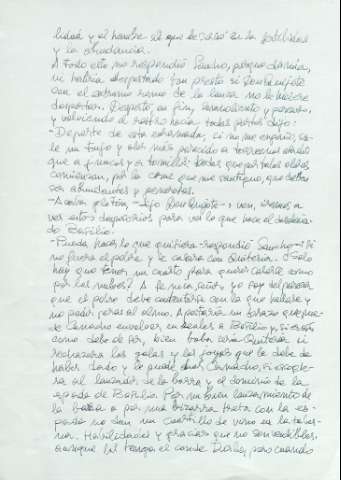 lidad y el hambre al que le sacó en la fertilidad
y la abundancia.
A todo esto no respondió Sancho, porque dormía,
ni habría despertado tan presto si Don Quijote
con el extremo romo de la lanza no le hiciese
despertar. Despertó, en fin, somnoliento y perezoso,
y volviendo el rostro hacia todas partes dijo:
-De parte de esta enramada, si no me engaño, sa-
le un tufo y olor más parecido a torreznos asados
que a juncos y a tomillos: bodas que por tales olores
comienzan, por la cruz que me santiguo, que deben
ser abundantes y generosas.
-Acaba glotón, -dijo Don Quijote-; ven, iremos a
ver estos desposorios para ver lo que hace el desdeña-
do Basilio.
-Pueda hacer lo que quisiera -respondió Sancho-: si
no fuera él pobre y se casara con Quiteria. ¿Solo
hay que tener un cuarto para querer casarse como
por las nubes? A fe mía, señor, yo soy del parecer
que el pobre debe contentarse con lo que hallare y
no pedir peras al olmo. Apostaría un brazo que pue-
de Camacho envolver en reales a Basilio y, si es así
como debe de ser, bien boba sería Quiteria si
rechazara las galas y las joyas que le debe de
haber dado y le puede dar Camacho, si escogie-
ra el lanzar de la barra y el dominio de la
espada de Basilio. Por un buen lanzamiento de
la barra o por una bizarra treta con la es-
pada no dan un cuartillo de vino en la taber-
na. Habilidades y gracias que no son vendibles,
aunque las tenga el conde Dirlos, pero cuando